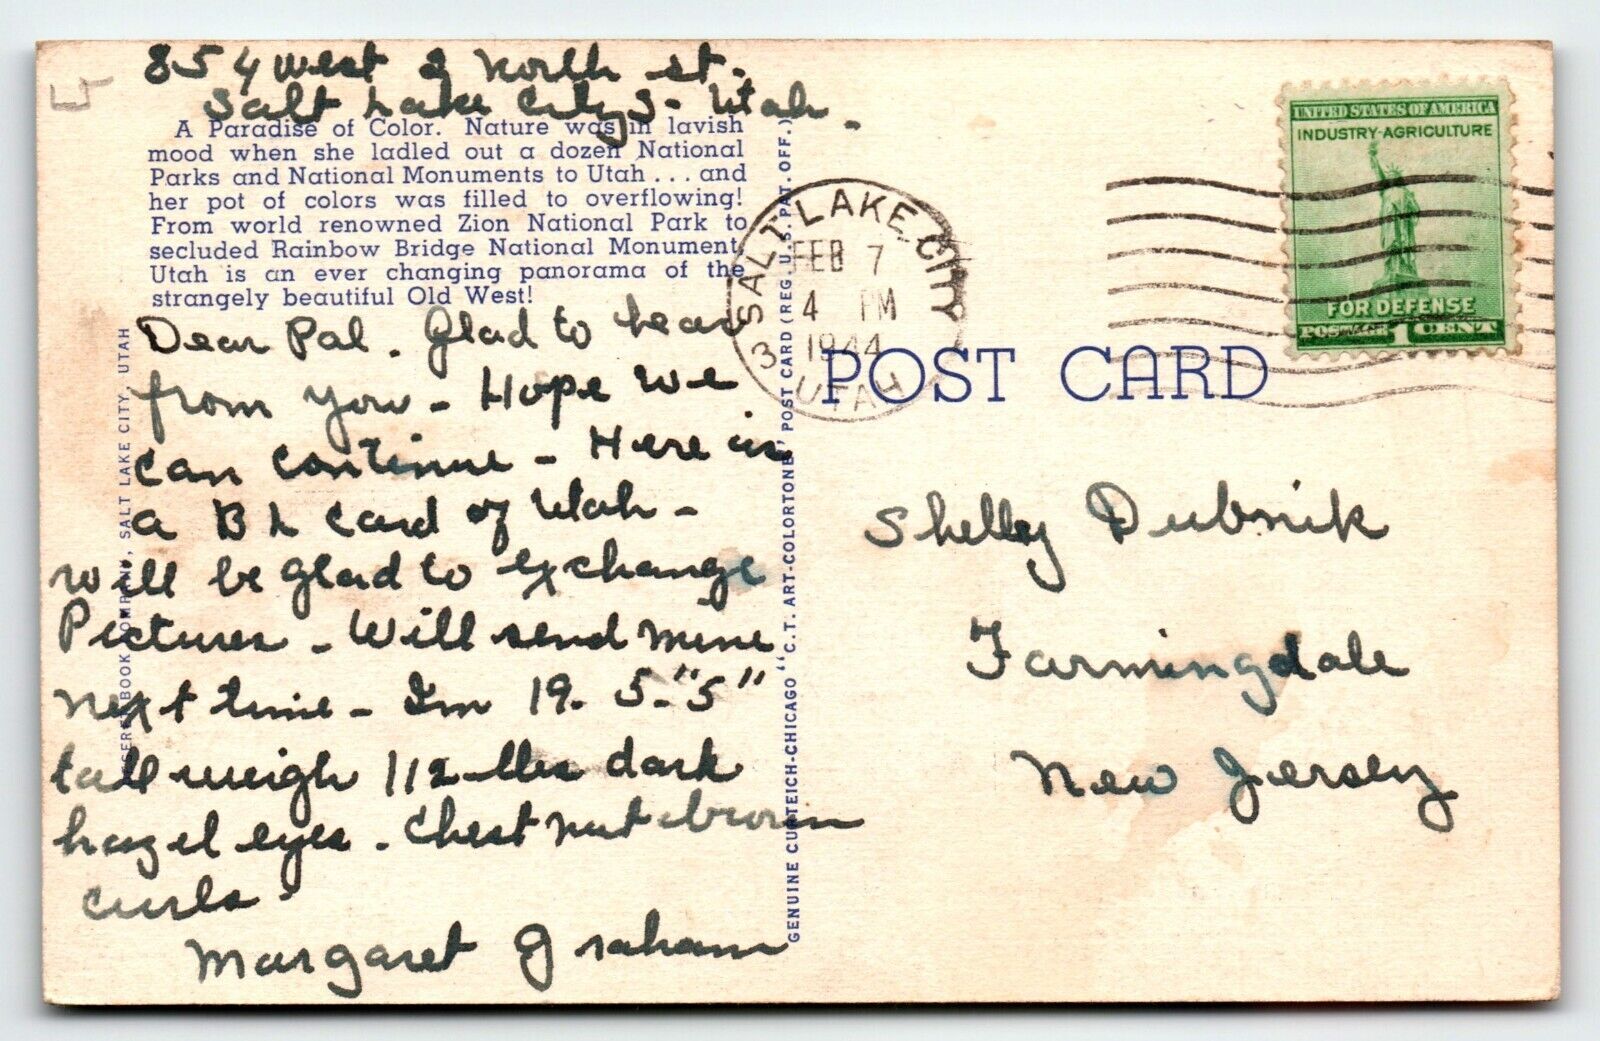 854 West 2 North St.
Salt Lake City 3- Utah.
A Paradise of Color. Nature was in lavish
mood when she ladled out a dozen National
Parks and National Monuments to Utah . . . and
her pot of colors was filled to overflowing!
From world renowned Zion National Park to
secluded Rainbow Bridge National Monument
Utah is an ever changing panorama of the
strangely beautiful Old West!
Dear Pal. Glad to hear
from you - Hope we
can continue - Here is
a B L card of Utah -
will be glad to exchange
Pictures - Will send mine
next time - Im 19. 5-"5"
tall weigh 112-lbs dark
hazel eyes. Chestnut brown
curls.
Margaret Graham
BOOK COMPANY, SALT LAKE CITY, UTAH
GENUINE CURTEICH-CHICAGO "C.T. ART-COLORTONE" POST CARD (REG. U.S. PAT. OFF.)
SALT LAKE CITY
FEB 7
4 PM
1944
3 UTAH
UNITED STATES OF AMERICA
INDUSTRY-AGRICULTURE
FOR DEFENSE
POSTAGE 1 CENT
POST CARD
Shelley Dubnik
Farmingdale
New Jersey